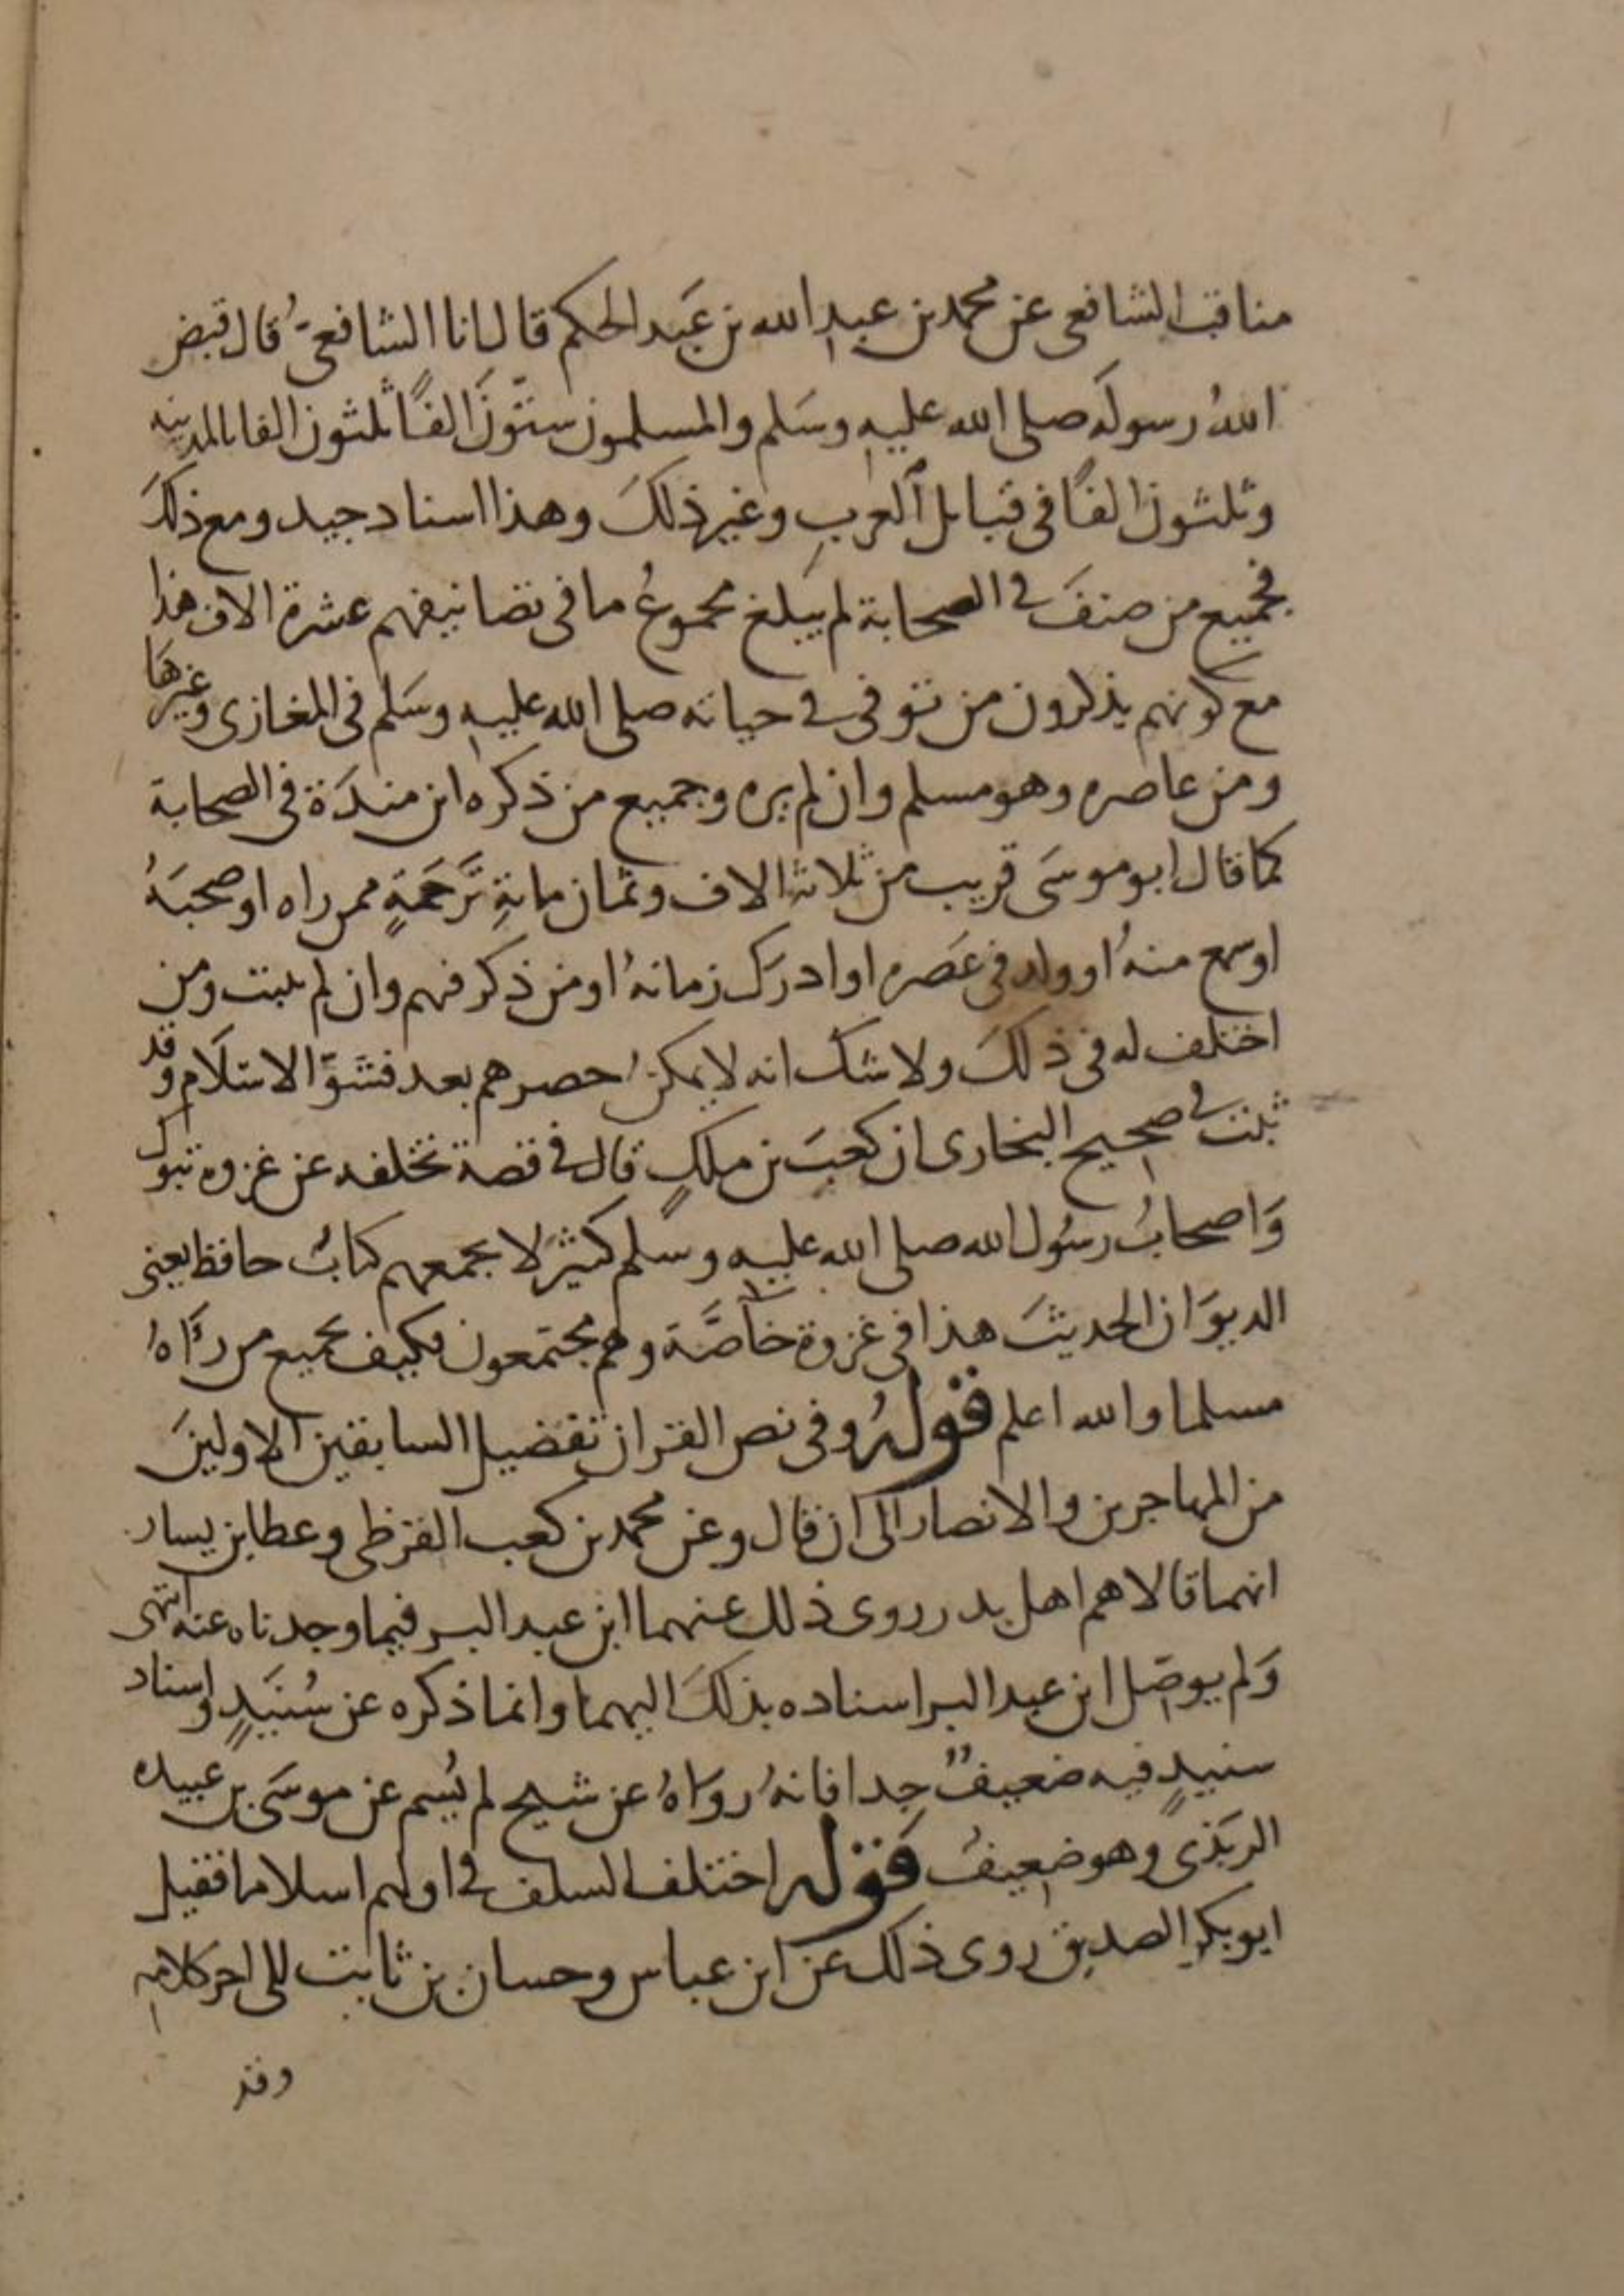 مناقب الشافعي عن محمد بن عبد الله بن عبد الحكم قال انا الشافعي قال قبض
الله رسوله صلى الله عليه وسلم والمسلمون ستون الفا ثلثون الفا بالمدينه
وثلثون الفا في قبائل العرب وغير ذلك وهذا اسناد جيد ومع ذلك
فجميع من صنف في الصحابة لم يبلغ مجموع ما في تصانيفهم عشرة الاف هذا
مع كونهم يذكرون من توفي في حياته صلى الله عليه وسلم في المغازى وغيرها
ومن عاصره وهو مسلم وان لم يره وجميع من ذكره ابن مندة في الصحابة
كما قال ابو موسى قريب من ثلاثة الاف وثمان ماية ترجمة ممن راه او صحبه
او سمع منه او ولد في عصره او ادرك زمانه او من ذكر فيهم وان لم يثبت ومن
اختلف له في ذلك ولا شك انه لا يمكن حصرهم بعد فشو الاسلام وقد
ثبت في صحيح البخارى ان كعب بن ملك قال في قصة تخلفه عن غزوه تبوك
واصحاب رسول الله صلى الله عليه وسلم كثير لا يجمعهم كتاب حافظ يعني
الديوان الحديث هذا في غزوة خاصة وهم مجتمعون فكيف بجميع من رآه
مسلما والله اعلم قوله وفي نص القران تفضيل السابقين الاولين
من المهاجرين والانصار الى ان قال وعن محمد بن كعب القرظي وعطا بن يسار
انهما قالا هم اهل بدر روى ذلك عنهما ابن عبد البر فيما وجدناه عنه انتهى
ولم يوصل ابن عبد البر اسناده بذلك اليهما وانما ذكره عن سنيد واسناد
سنيد فيه ضعيف جدا فانه رواه عن شيخ لم يسم عن موسى بن عبيده
الربذى وهو ضعيف قوله اختلف السلف في اولهم اسلاما فقيل
ابو بكر الصديق روى ذلك عن ابن عباس وحسان بن ثابت الى اخر كلامه
وقد